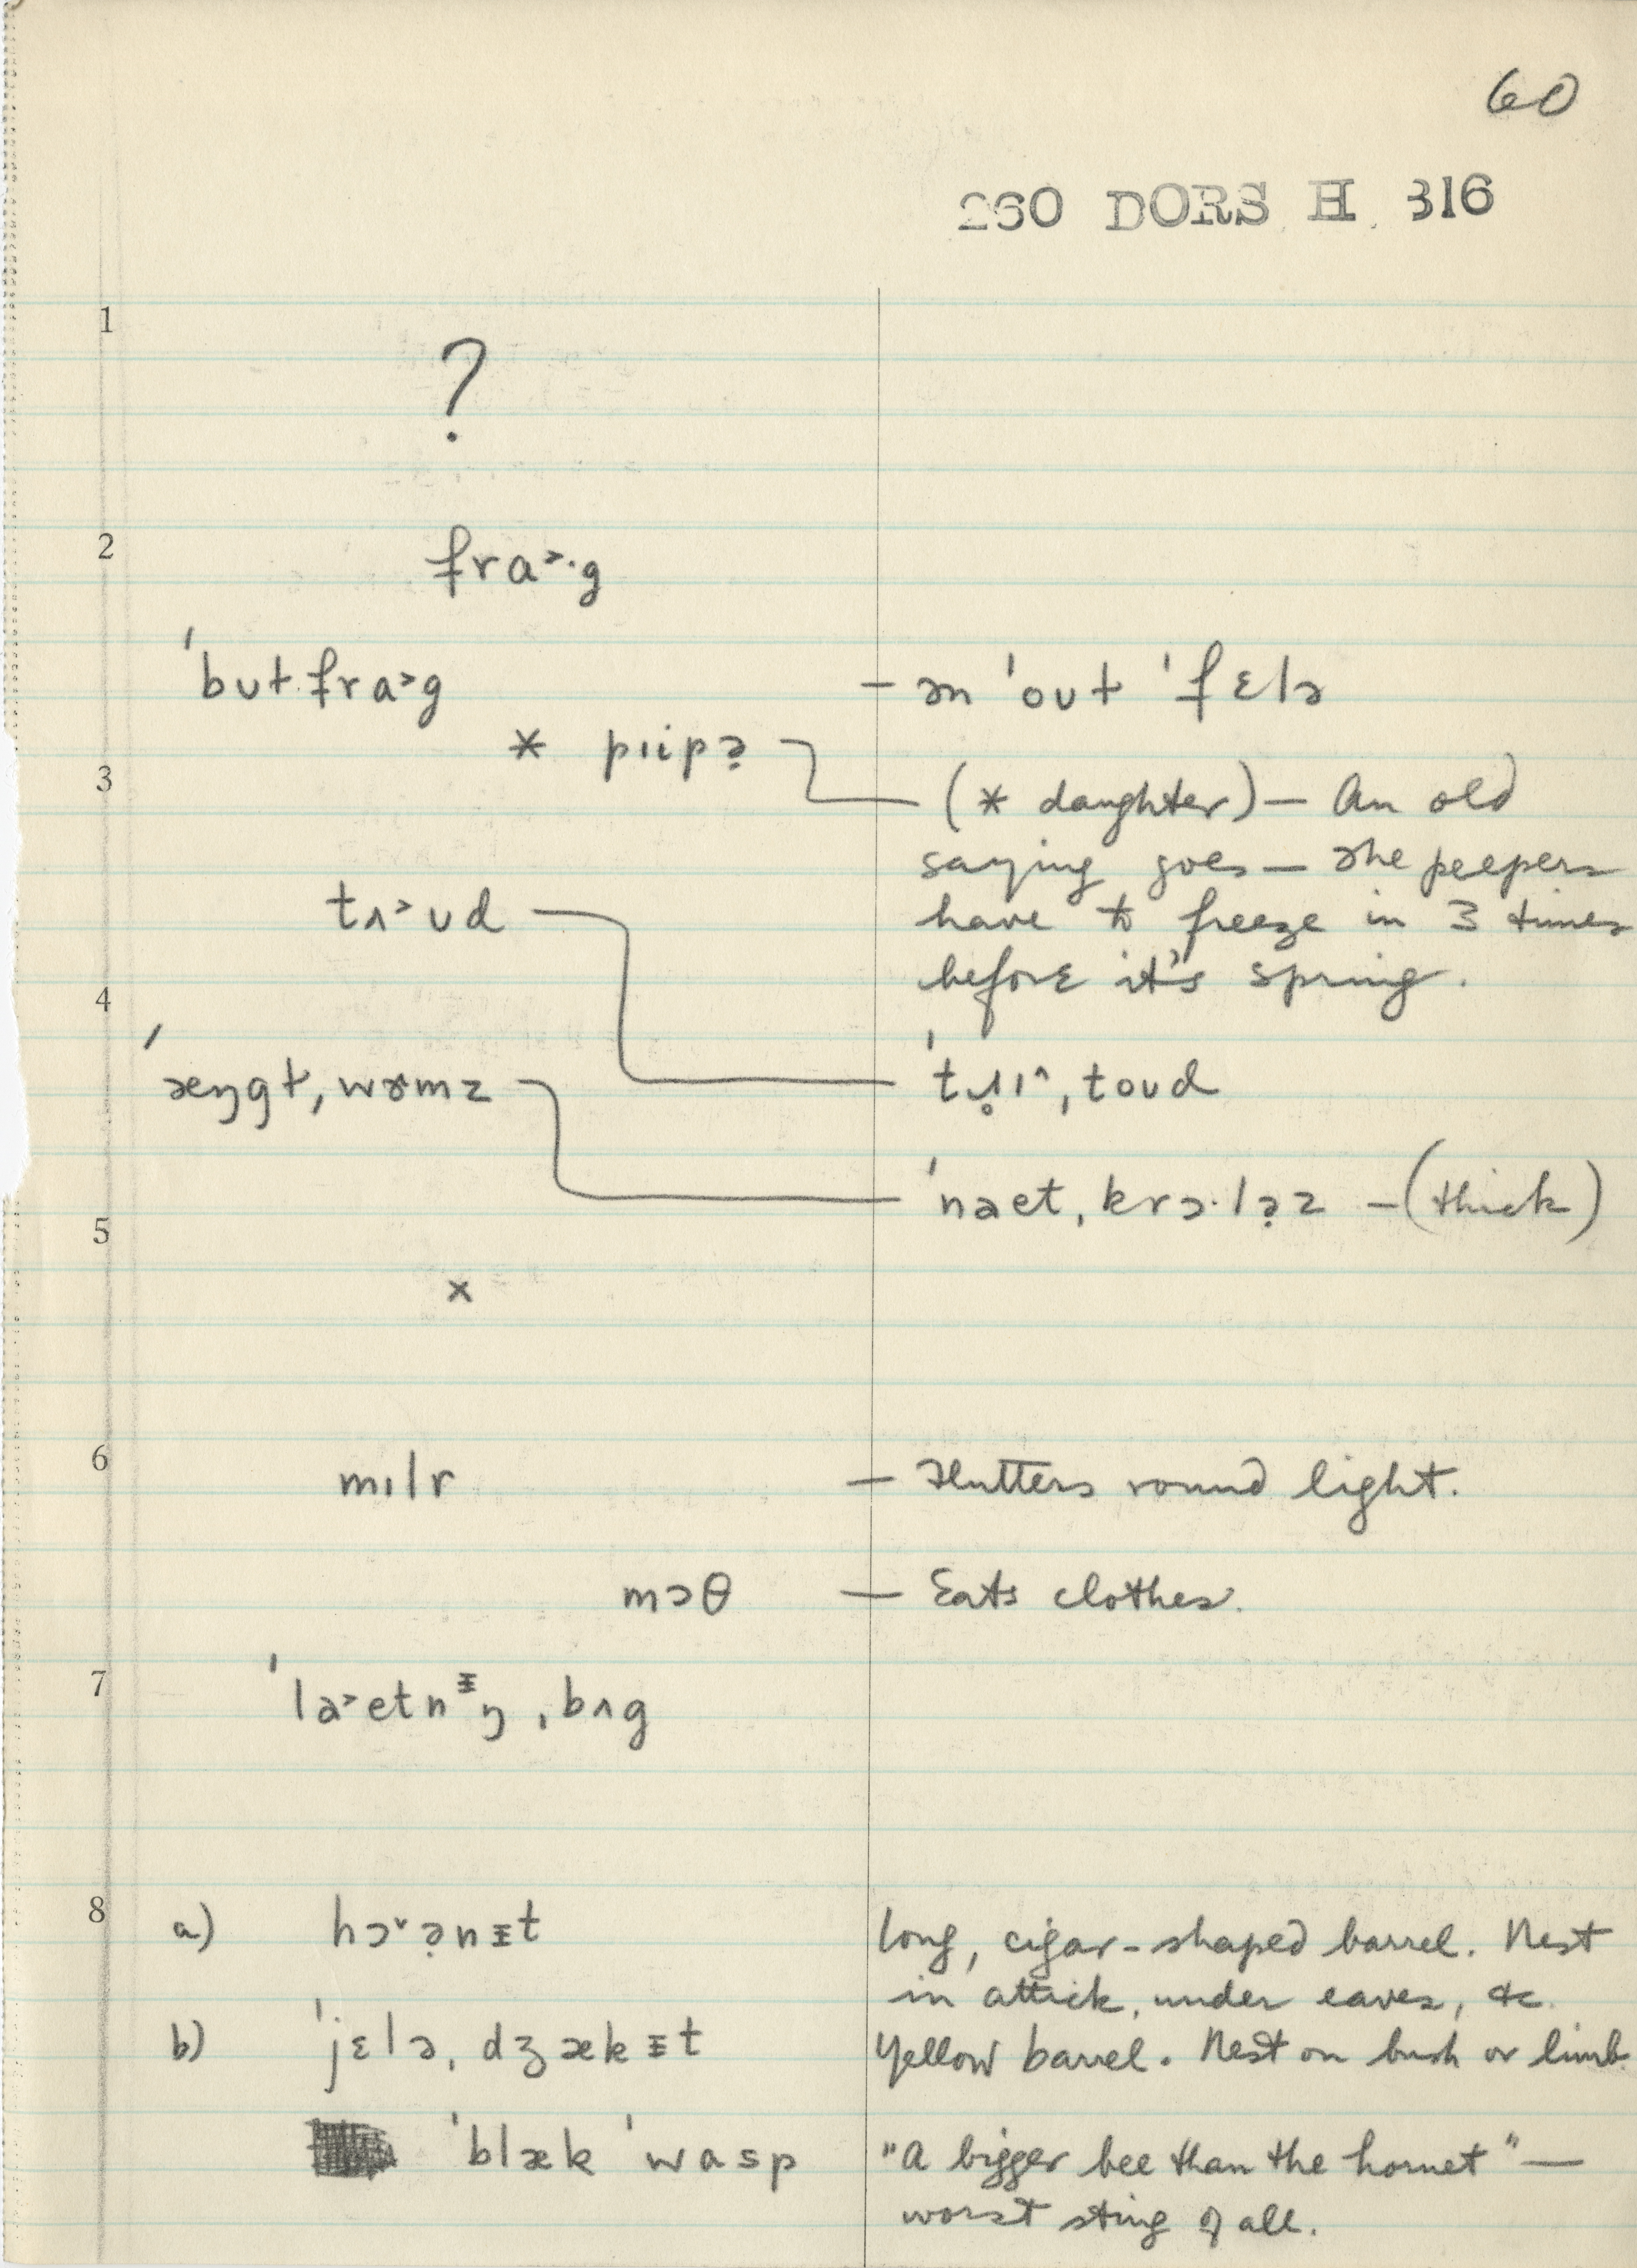 60
260 DORS H 316
1
?
2
fra˃·g
ˈbʊɫfra˃g – ən ˈoʊɫ ˈfɛlə
* pɪipə̣
3
(* daughter) – An old
saying goes – The peepers
tʌ˃ʊd
have to freeze in 3 times
before it's spring.
4
ˈæŋgɫˌwɝmz
toʊd
ˈnaetˌkrɔ·lə̣z – (thick)
5
x
6
mɪlr – Flutters round light.
mɔθ – Eats clothes.
7
ˈla˃etnᵻŋˌbʌg
8
a) hɔ˅ə̣nᵻt long, cigar-shaped barrel. Nest
in attick, under eaves, &c.
b) ˈjɛləˌdʒækᵻt Yellow barrel. Nest on bush or limb.
ˈblæk ˈwasp "A bigger bee than the hornet" –
worst sting of all.